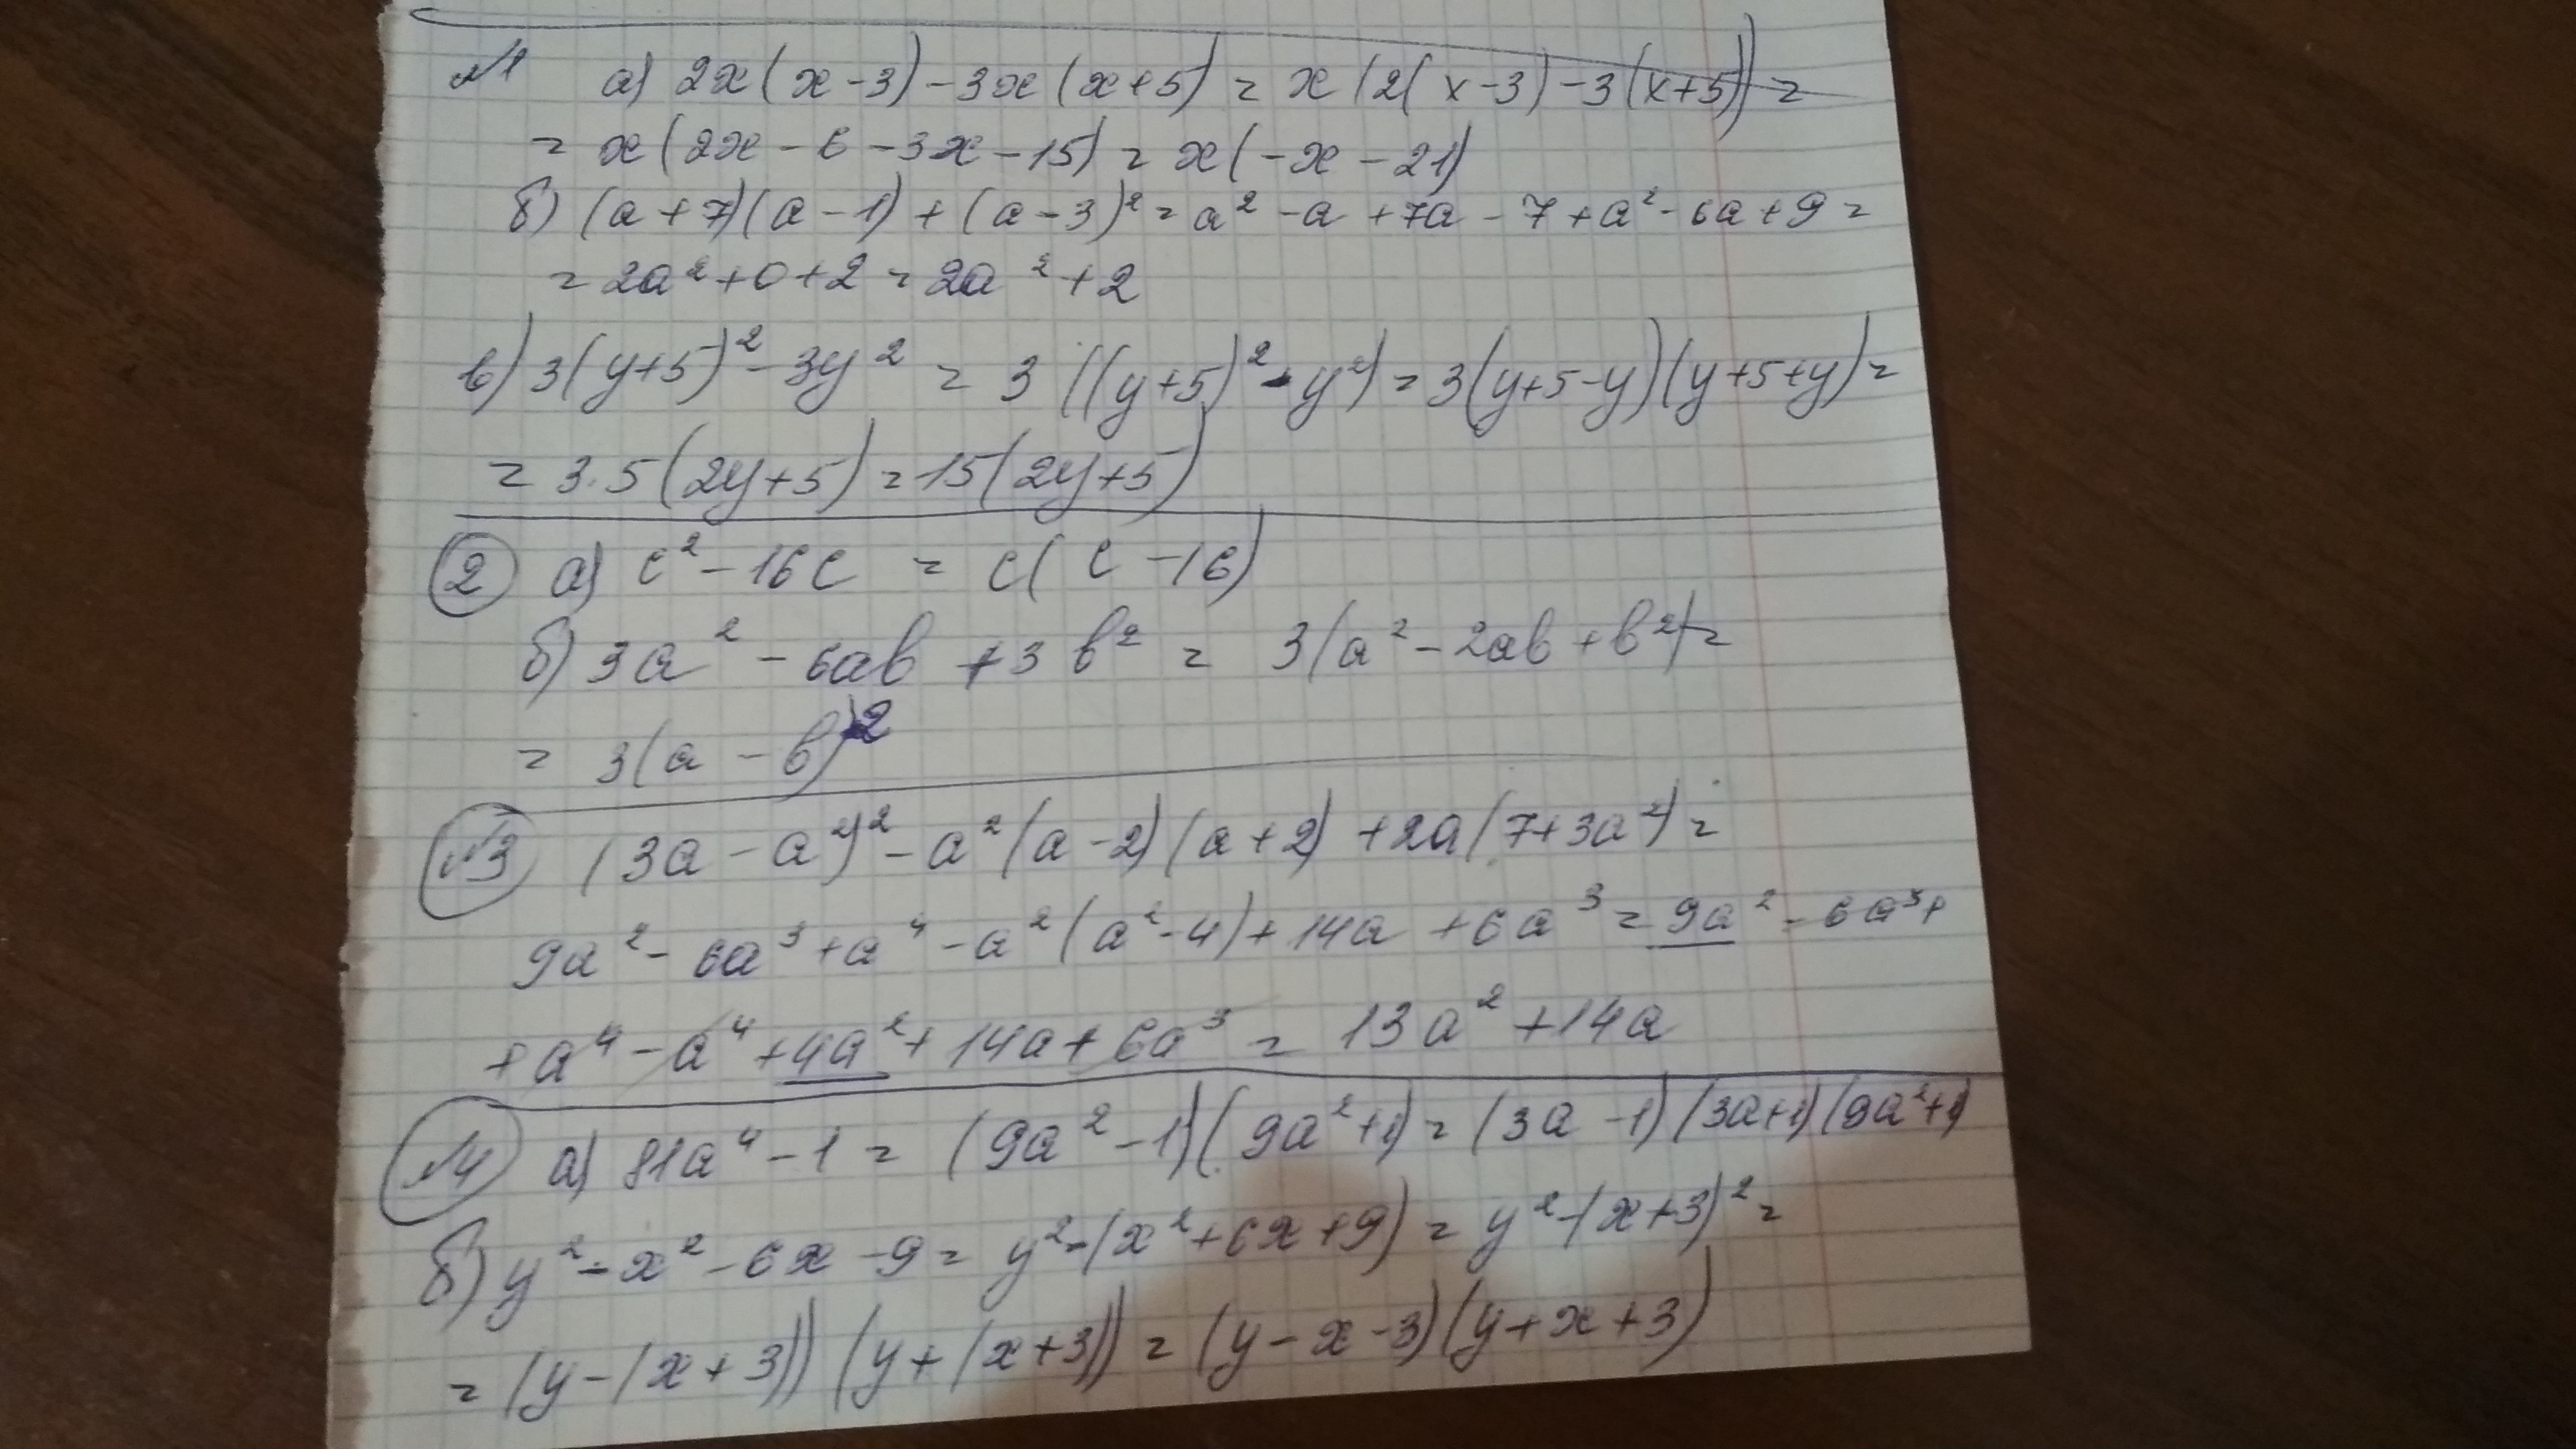 №1 а) 2x(x-3)-3x(x+5) = x(2(x-3)-3(x+5)) =
= x(2x-6-3x-15) = x(-x-21)
б) (a+7)(a-1)+(a-3)² = a²-a+7a-7+a²-6a+9 =
= 2a²+0+2 = 2a²+2
в) 3(y+5)²-3y² = 3((y+5)²-y²) = 3(y+5-y)(y+5+y) =
= 3·5(2y+5) = 15(2y+5)
2 а) c²-16c = c(c-16)
б) 3a²-6ab+3b² = 3(a²-2ab+b²) =
= 3(a-b)²
№3 (3a-a²)²-a²(a-2)(a+2)+2a(7+3a²) =
9a²-6a³+a⁴-a²(a²-4)+14a+6a³ = 9a²-6a³+
+a⁴-a⁴+4a²+14a+6a³ = 13a²+14a
№4 а) 81a⁴-1 = (9a²-1)(9a²+1) = (3a-1)(3a+1)(9a²+1)
б) y²-x²-6x-9 = y²-(x²+6x+9) = y²-(x+3)² =
= (y-(x+3))(y+(x+3)) = (y-x-3)(y+x+3)